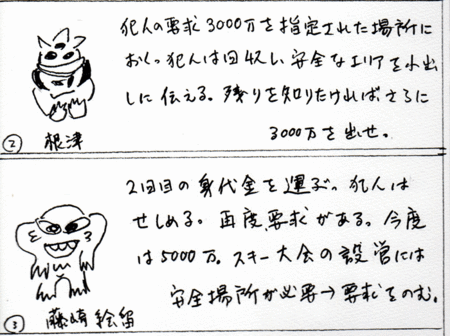 犯人の要求3000万を指定された場所に
おく。犯人は回収し安全なエリアを小出
しに伝える。残りを知りたければさらに
3000万を出せ。
② 根津
2回目の身代金を運ぶ。犯人は
せしめる。再度要求がある。今度
は5000万。スキー大会の設営には
安全場所が必要→要求をのむ。
③ 藤崎 絵留